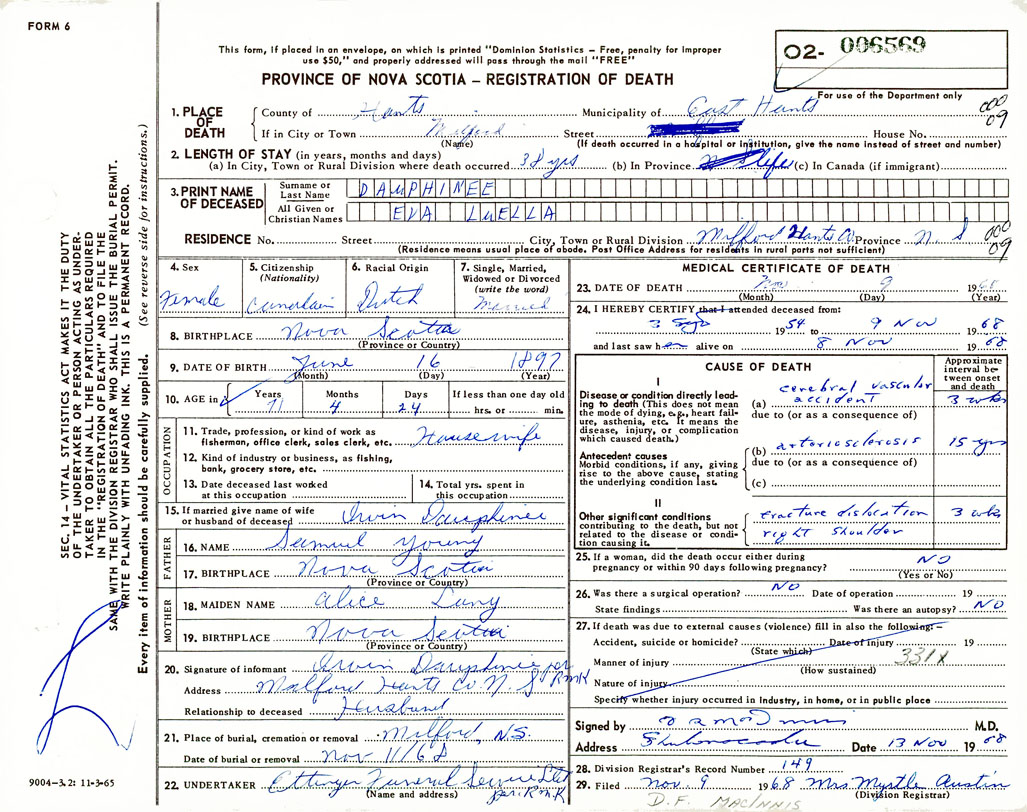 FORM 6
This form, if placed in an envelope, on which is printed "Dominion Statistics – Free, penalty for improper
use $50," and properly addressed will pass through the mail "FREE"
PROVINCE OF NOVA SCOTIA – REGISTRATION OF DEATH
O2- 006569
For use of the Department only
1. PLACE OF DEATH
County of Hants Municipality of East Hants 000 09
If in City or Town Milford Street House No.
(Name) (If death occurred in a hospital or institution, give the name instead of street and number)
2. LENGTH OF STAY (in years, months and days)
(a) In City, Town or Rural Division where death occurred 38 yrs (b) In Province life (c) In Canada (if immigrant)
3. PRINT NAME OF DECEASED
Surname or Last Name DAUPHINEE
All Given or Christian Names EVA LUELLA
RESIDENCE No. Street City, Town or Rural Division Milford Hants Co Province N S 000 09
(Residence means usual place of abode. Post Office Address for residents in rural parts not sufficient)
4. Sex Female
5. Citizenship (Nationality) Canadain
6. Racial Origin Dutch
7. Single, Married, Widowed or Divorced (write the word) Married
8. BIRTHPLACE Nova Scotia
(Province or Country)
9. DATE OF BIRTH June 16 1897
(Month) (Day) (Year)
10. AGE in Years 71 Months 4 Days 24 If less than one day old hrs. or min.
OCCUPATION
11. Trade, profession, or kind of work as fisherman, office clerk, sales clerk, etc. Housewife
12. Kind of industry or business, as fishing, bank, grocery store, etc.
13. Date deceased last worked at this occupation
14. Total yrs. spent in this occupation
15. If married give name of wife or husband of deceased Irvin Dauphinee
FATHER
16. NAME Samuel Young
17. BIRTHPLACE Nova Scotia
(Province or Country)
MOTHER
18. MAIDEN NAME Alice Lany
19. BIRTHPLACE Nova Scotia
(Province or Country)
20. Signature of informant Irvin Dauphinee per R.M.K
Address Milford Hants Co N. S
Relationship to deceased Husband
21. Place of burial, cremation or removal Milford, N.S.
Date of burial or removal Nov 11/68
22. UNDERTAKER Ettinger Funeral Service Ltd per. R.M.K
(Name and address)
MEDICAL CERTIFICATE OF DEATH
23. DATE OF DEATH Nov 9 1968
(Month) (Day) (Year)
24. I HEREBY CERTIFY that I attended deceased from:
3 Sep 1954 to 9 Nov 1968
and last saw her alive on 8 Nov 1968
CAUSE OF DEATH
Approximate interval between onset and death
I
Disease or condition directly leading to death (This does not mean the mode of dying, e.g., heart failure, asthenia, etc. It means the disease, injury, or complication which caused death.)
(a) cerebral vascular accident 3 wks
due to (or as a consequence of)
Antecedent causes
Morbid conditions, if any, giving rise to the above cause, stating the underlying condition last.
(b) arteriosclerosis 15 yrs
due to (or as a consequence of)
(c)
II
Other significant conditions contributing to the death, but not related to the disease or condition causing it.
fracture dislocation right shoulder 3 wks
25. If a woman, did the death occur either during pregnancy or within 90 days following pregnancy? NO
(Yes or No)
26. Was there a surgical operation? NO Date of operation 19
State findings Was there an autopsy? NO
27. If death was due to external causes (violence) fill in also the following: –
Accident, suicide or homicide? Date of injury 19
(State which)
Manner of injury 331X
(How sustained)
Nature of injury
Specify whether injury occurred in industry, in home, or in public place
Signed by M.D.
Address Shubenacadie Date 13 Nov 1968
28. Division Registrar's Record Number 149
29. Filed Nov. 9 1968 Mrs. Myrtle Austin
(Division Registrar)
D. F. MACINNIS
SEC. 14 – VITAL STATISTICS ACT MAKES IT THE DUTY
OF THE UNDERTAKER OR PERSON ACTING AS UNDER-
TAKER TO OBTAIN ALL THE PARTICULARS REQUIRED
IN THE "REGISTRATION OF DEATH" AND TO FILE THE
SAME WITH THE DIVISION REGISTRAR WHO SHALL ISSUE THE BURIAL PERMIT.
WRITE PLAINLY WITH UNFADING INK. THIS IS A PERMANENT RECORD.
Every item of information should be carefully supplied. (See reverse side for instructions.)
9004-3.2: 11-3-65